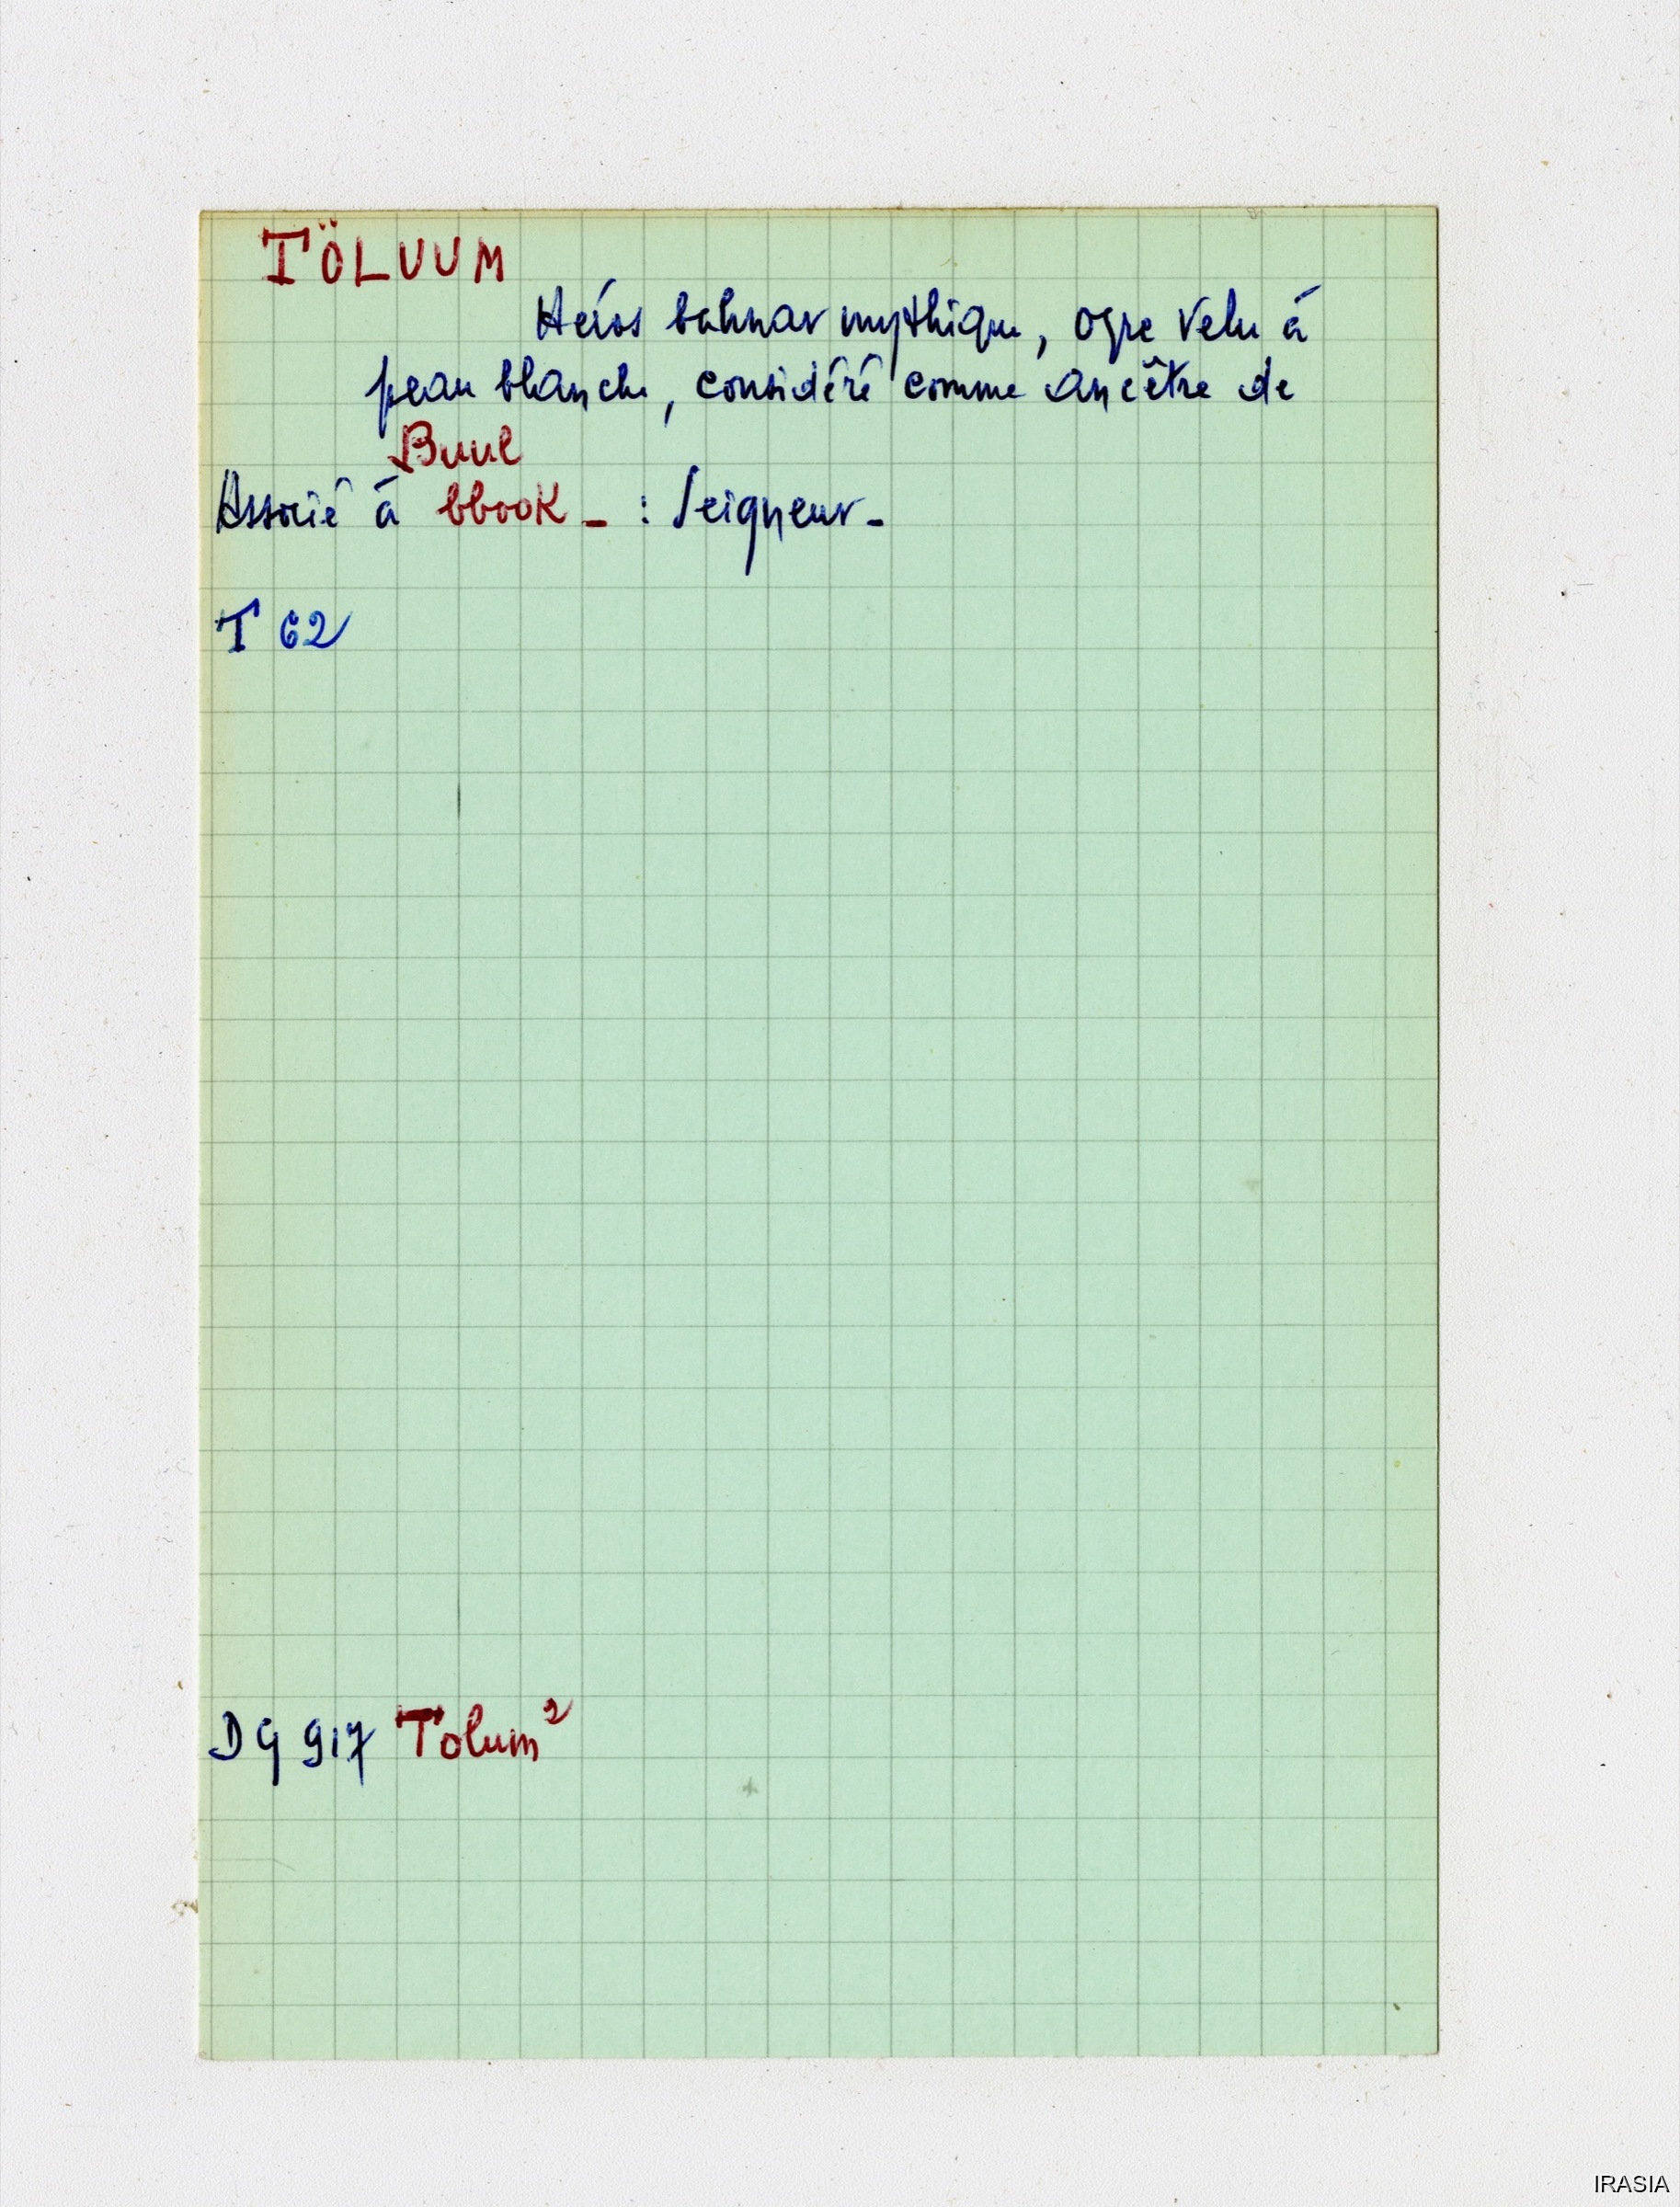 TÖLUUM
Héros bahnar mythique, ogre velu à
peau blanche, considéré comme ancêtre de
Buul
Associé à bbook - : Seigneur -
T 62
DG 917 Tolum²
IRASIA